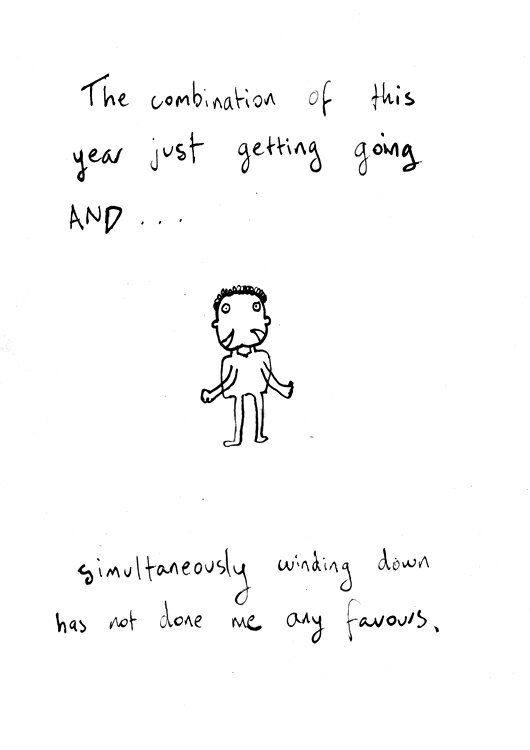 The combination of this
year just getting going
AND...
simultaneously winding down
has not done me any favours.